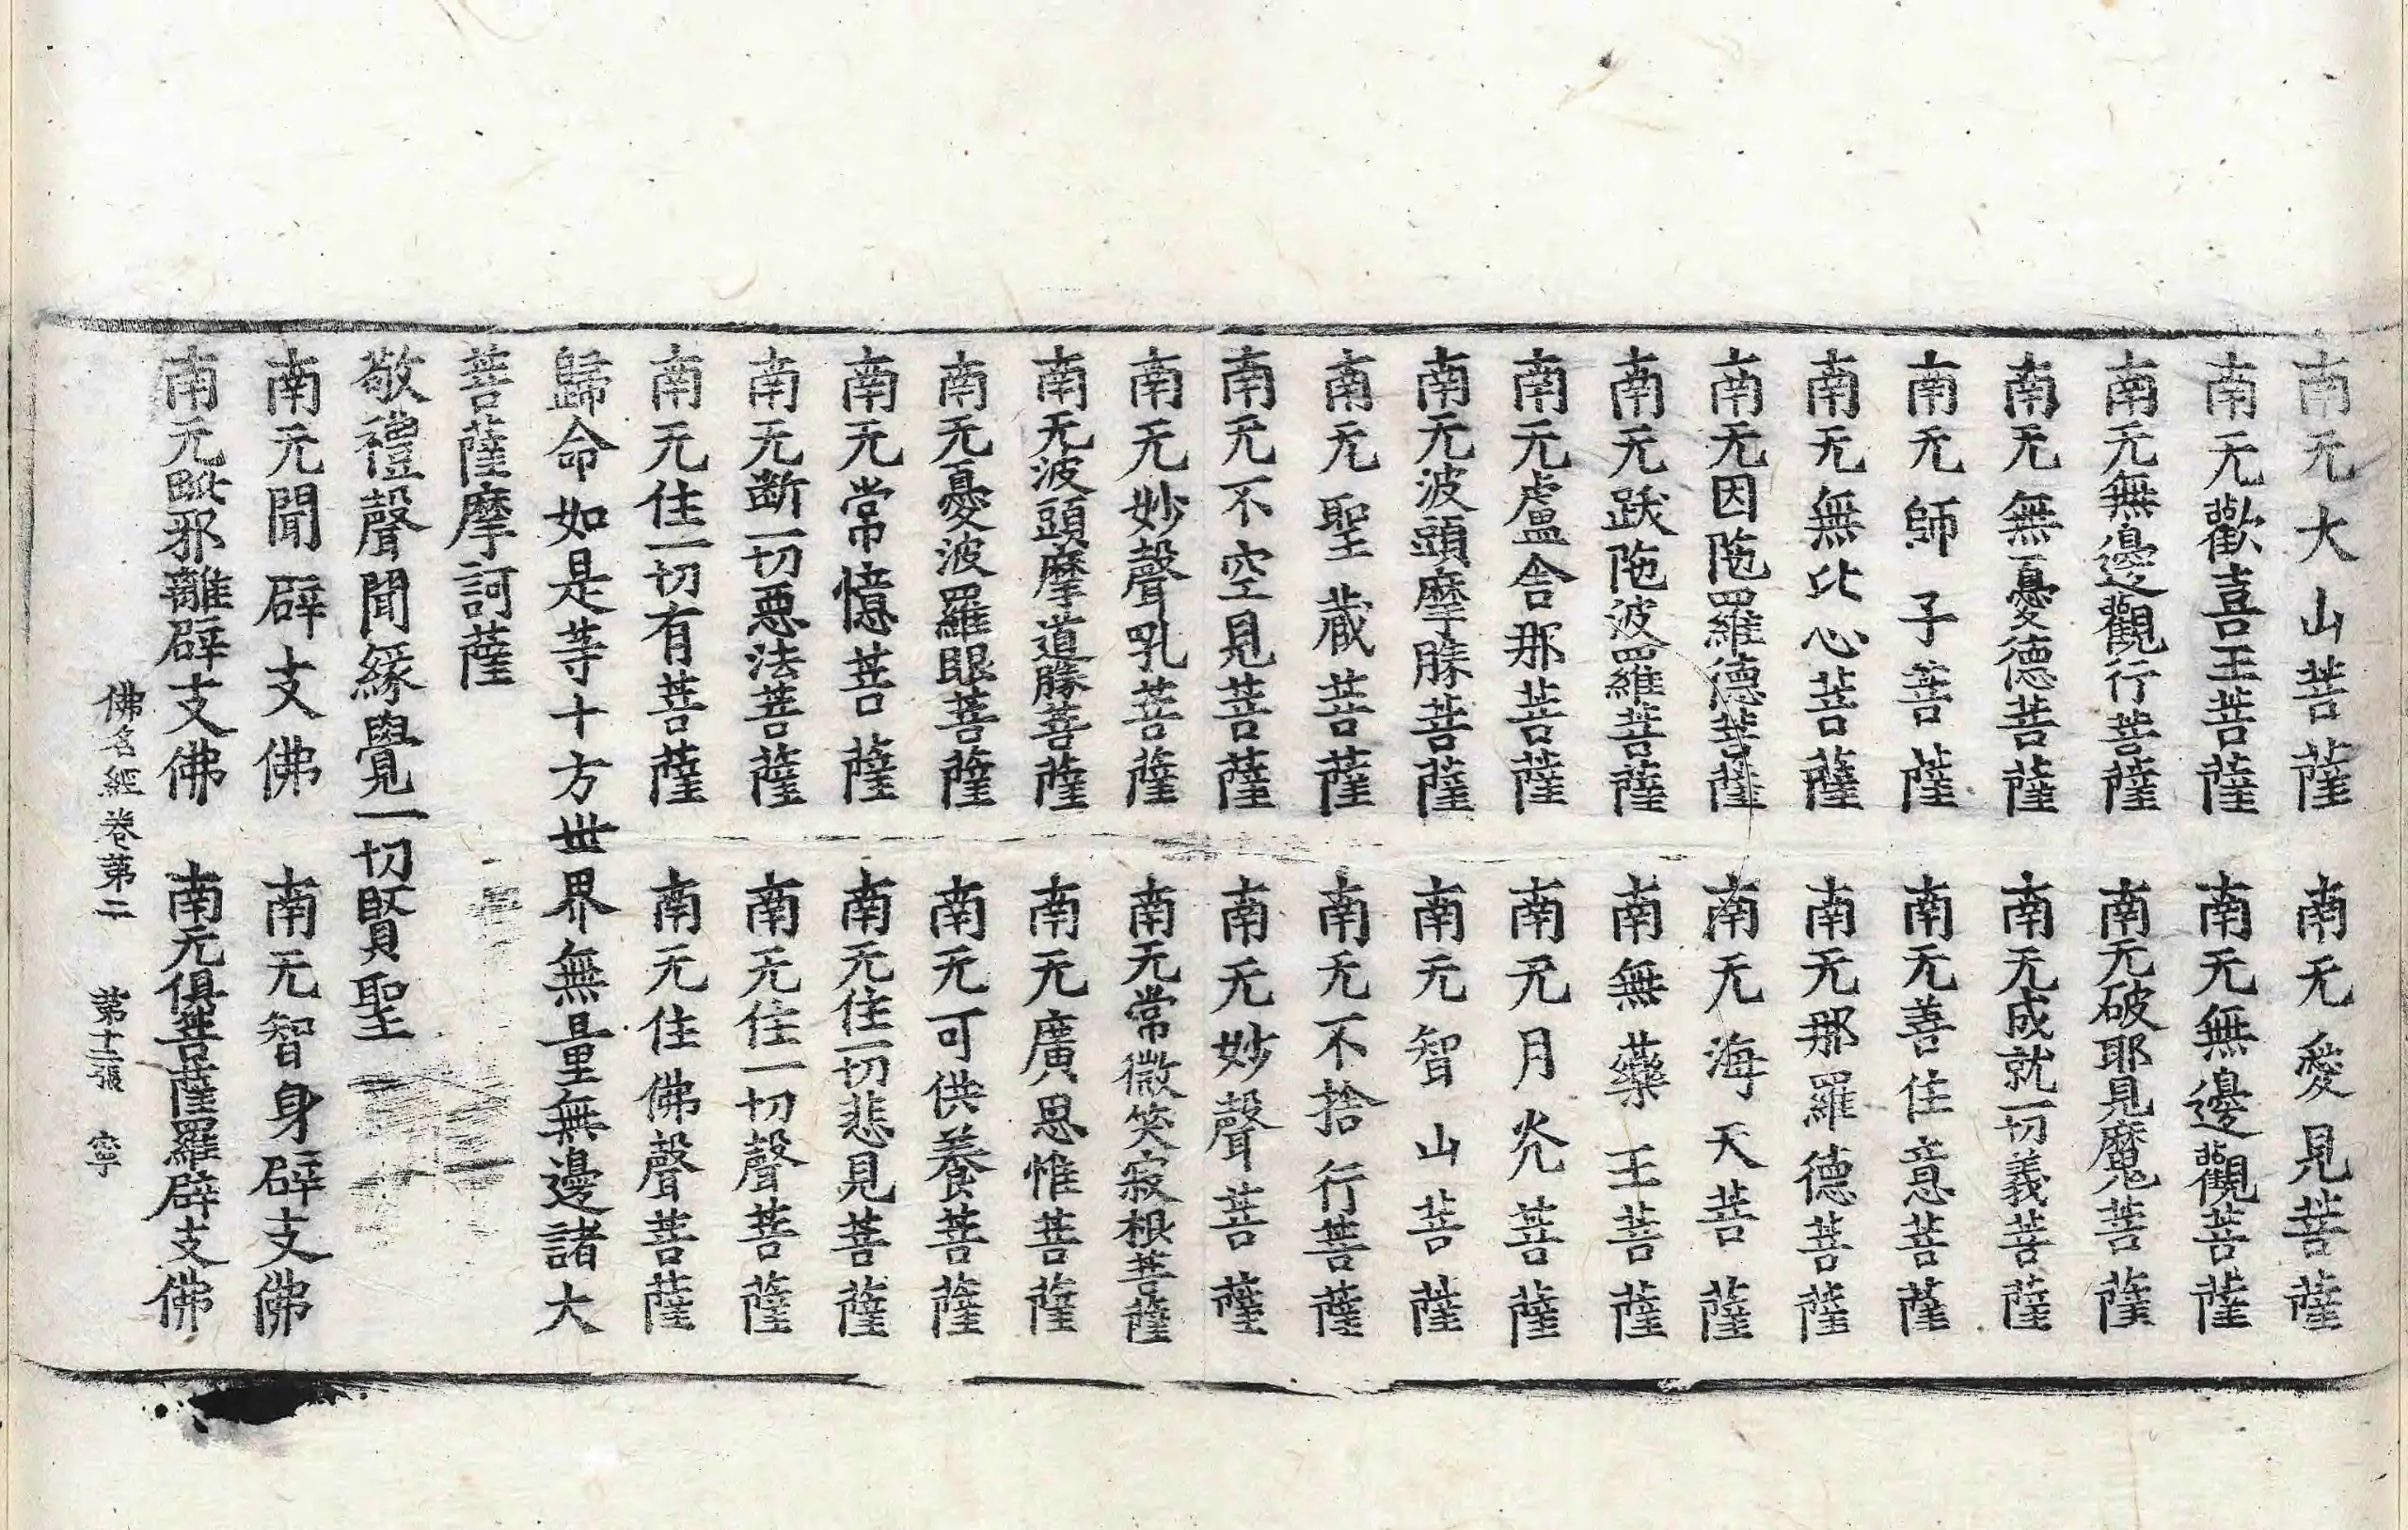 南无大山菩薩　南无愛見菩薩
南无歡喜王菩薩　南无無邊觀菩薩
南无無邊觀行菩薩　南无破耶見魔菩薩
南无無憂德菩薩　南无成就一切義菩薩
南无師子菩薩　南无善住意菩薩
南无無比心菩薩　南无那羅德菩薩
南无因陁羅德菩薩　南无海天菩薩
南无跋陁波羅菩薩　南無藥王菩薩
南无盧舍那菩薩　南无月光菩薩
南无波頭摩勝菩薩　南无智山菩薩
南无聖藏菩薩　南无不捨行菩薩
南无不空見菩薩　南无妙聲菩薩
南无妙聲吼菩薩　南无常微笑寂根菩薩
南无波頭摩道勝菩薩　南无廣思惟菩薩
南无憂波羅眼菩薩　南无可供養菩薩
南无常憶菩薩　南无住一切悲見菩薩
南无断一切惡法菩薩　南无住一切聲菩薩
南无住一切有菩薩　南无住佛聲菩薩
歸命如是等十方世界無量無邊諸大
菩薩摩訶薩
敬禮聲聞緣覺一切賢聖
南无聞辟支佛　南无智身辟支佛
南无毗邪離辟支佛　南无俱菩薩羅辟支佛
佛名經卷第二　第十二張　寧